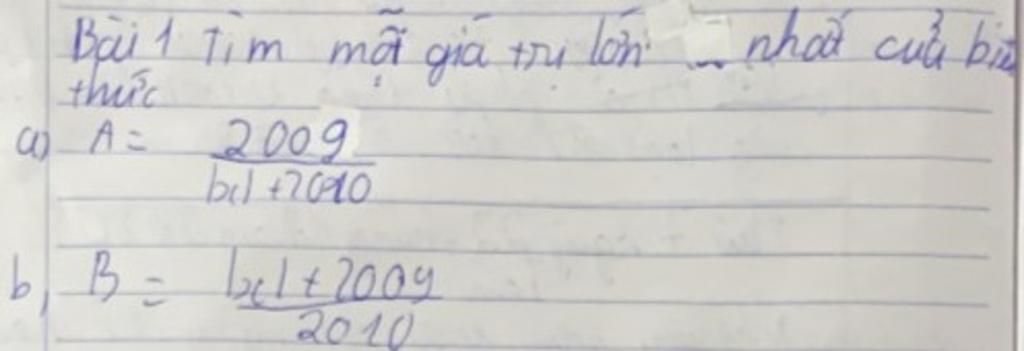 Bài 1 Tìm một giá trị lớn nhất của biể
thức
a) A = 2009
|x|+2010
b, B = |x|+2009
2010